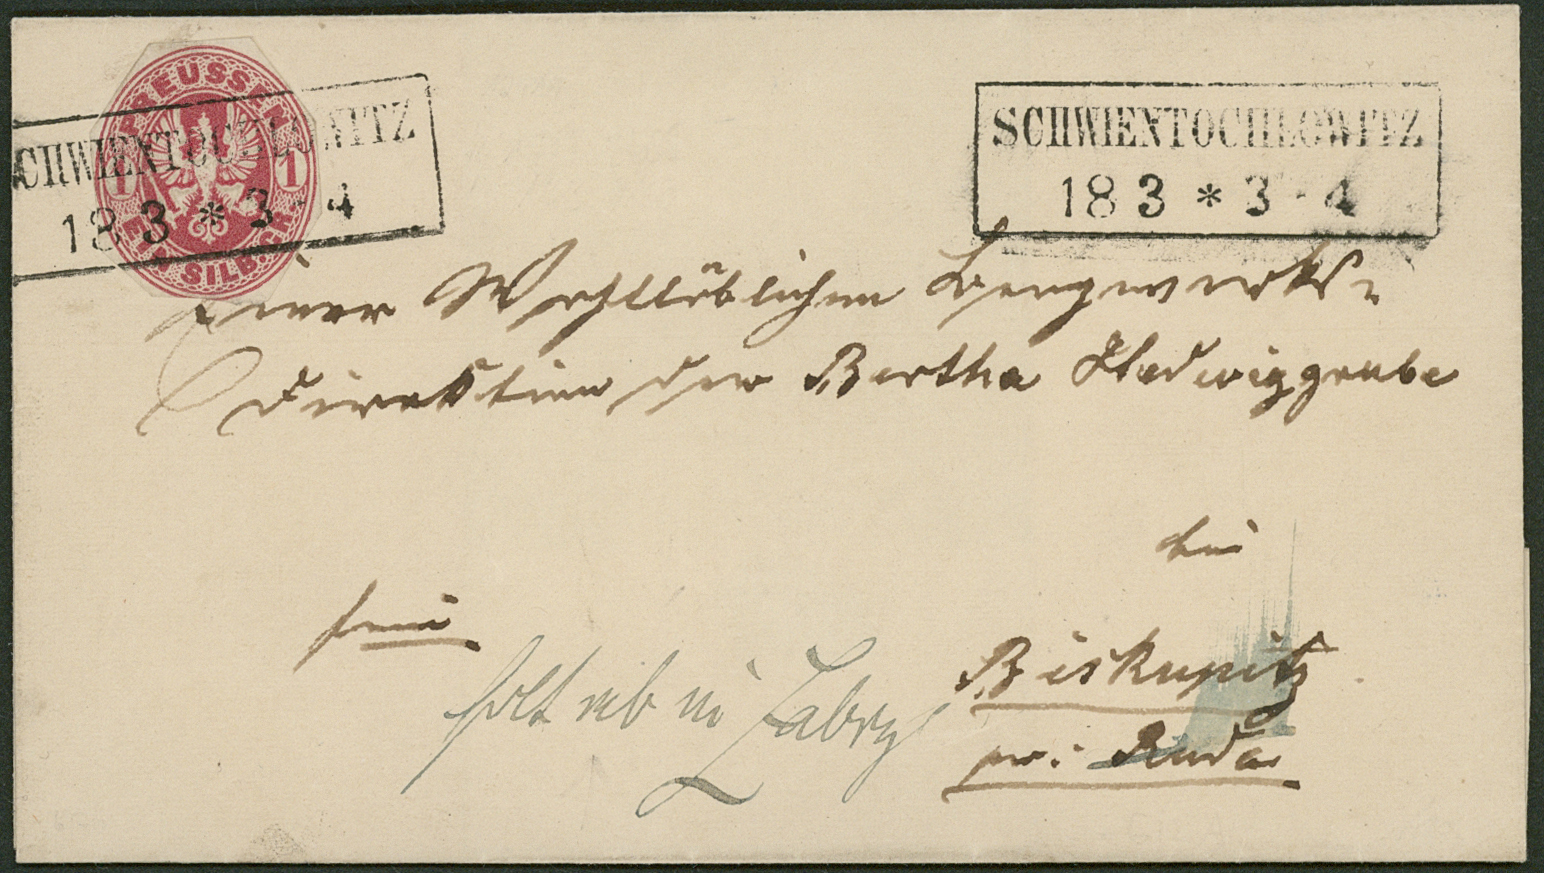 PREUSSEN
1 1
EIN SILB. GR.
SCHWIENTOCHLOWITZ
18 3 * 3 - 4
SCHWIENTOCHLOWITZ
18 3 * 3 - 4
Einer Wohllöblichen Bergwerks-
Direktion der Bertha Hedwiggrube
bei
frei
holt ab in Zabrze
Biskupitz
pr: Ruda